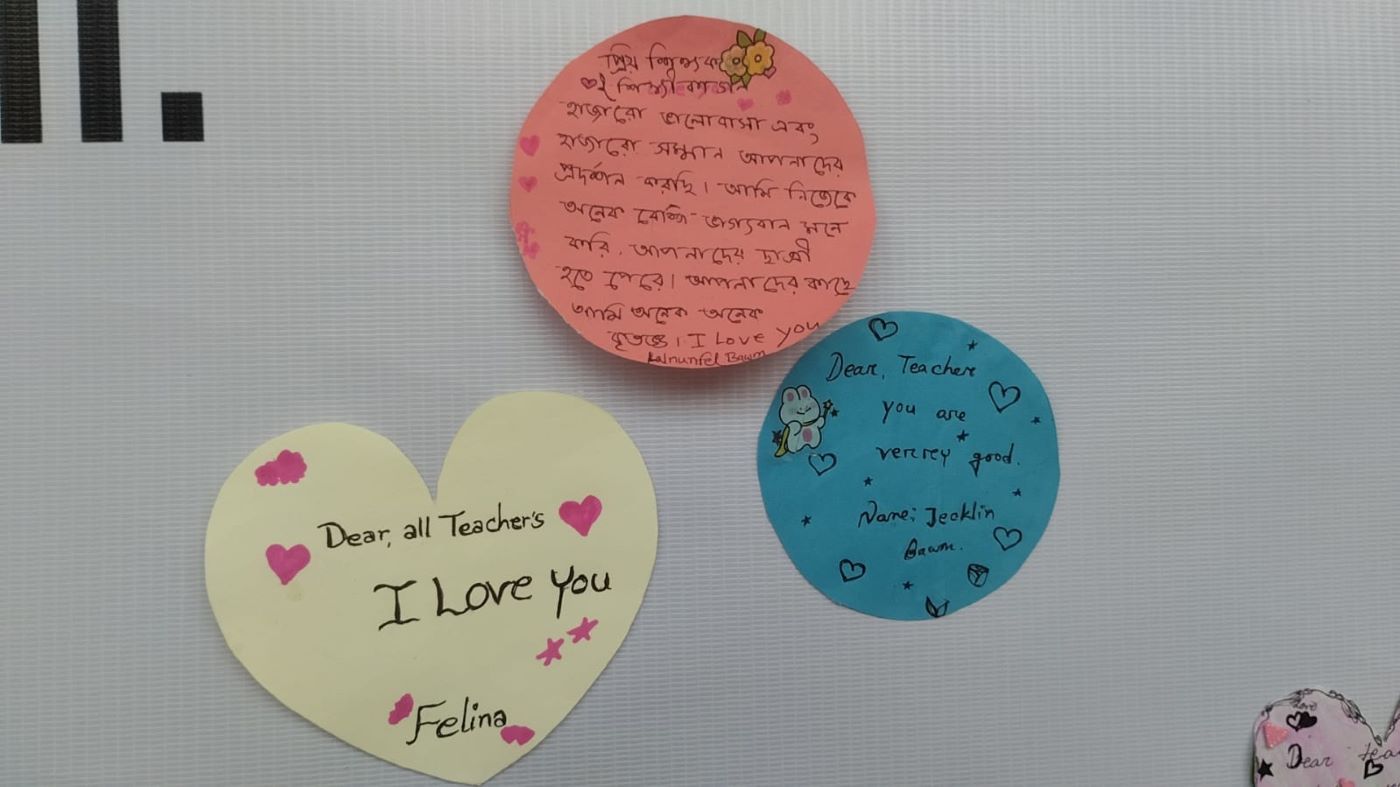 প্রিয় শিক্ষক
ও শিক্ষিকাগন
হাজারো ভালোবাসা এবং
হাজারো সম্মান আপনাদের
প্রদর্শন করছি। আমি নিজেকে
অনেক বেশি ভাগ্যবান মনে
করি. আপনাদের ছাত্রী
হতে পেরে। আপনাদের কাছে
আমি অনেক অনেক
কৃতজ্ঞ। I Love you
Lalnunfel Bawm
Dear, Teacher
you are
verrey good.
Name; Jecklin
Bawm.
Dear, all Teacher's
I Love You
Felina
Dear